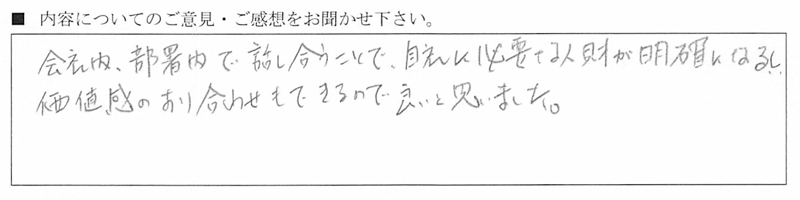 ■ 内容についてのご意見・ご感想をお聞かせ下さい。
会社内、部署内で話し合うことで、自社に必要な人財が明確になるし、
価値感のすり合わせもできるので良いと思いました。